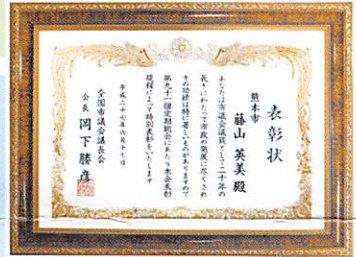 表彰状
熊本市
藤山英美殿
あなたは市議会議員として二十年の
長きにわたって市政の発展に尽くされ
その功績は特に著しいものがありますので
第九十一回定期総会にあたり本会表彰
規程によって特別表彰をいたします
平成二十七年六月十七日
全国市議会議長会
会長 岡下勝彦